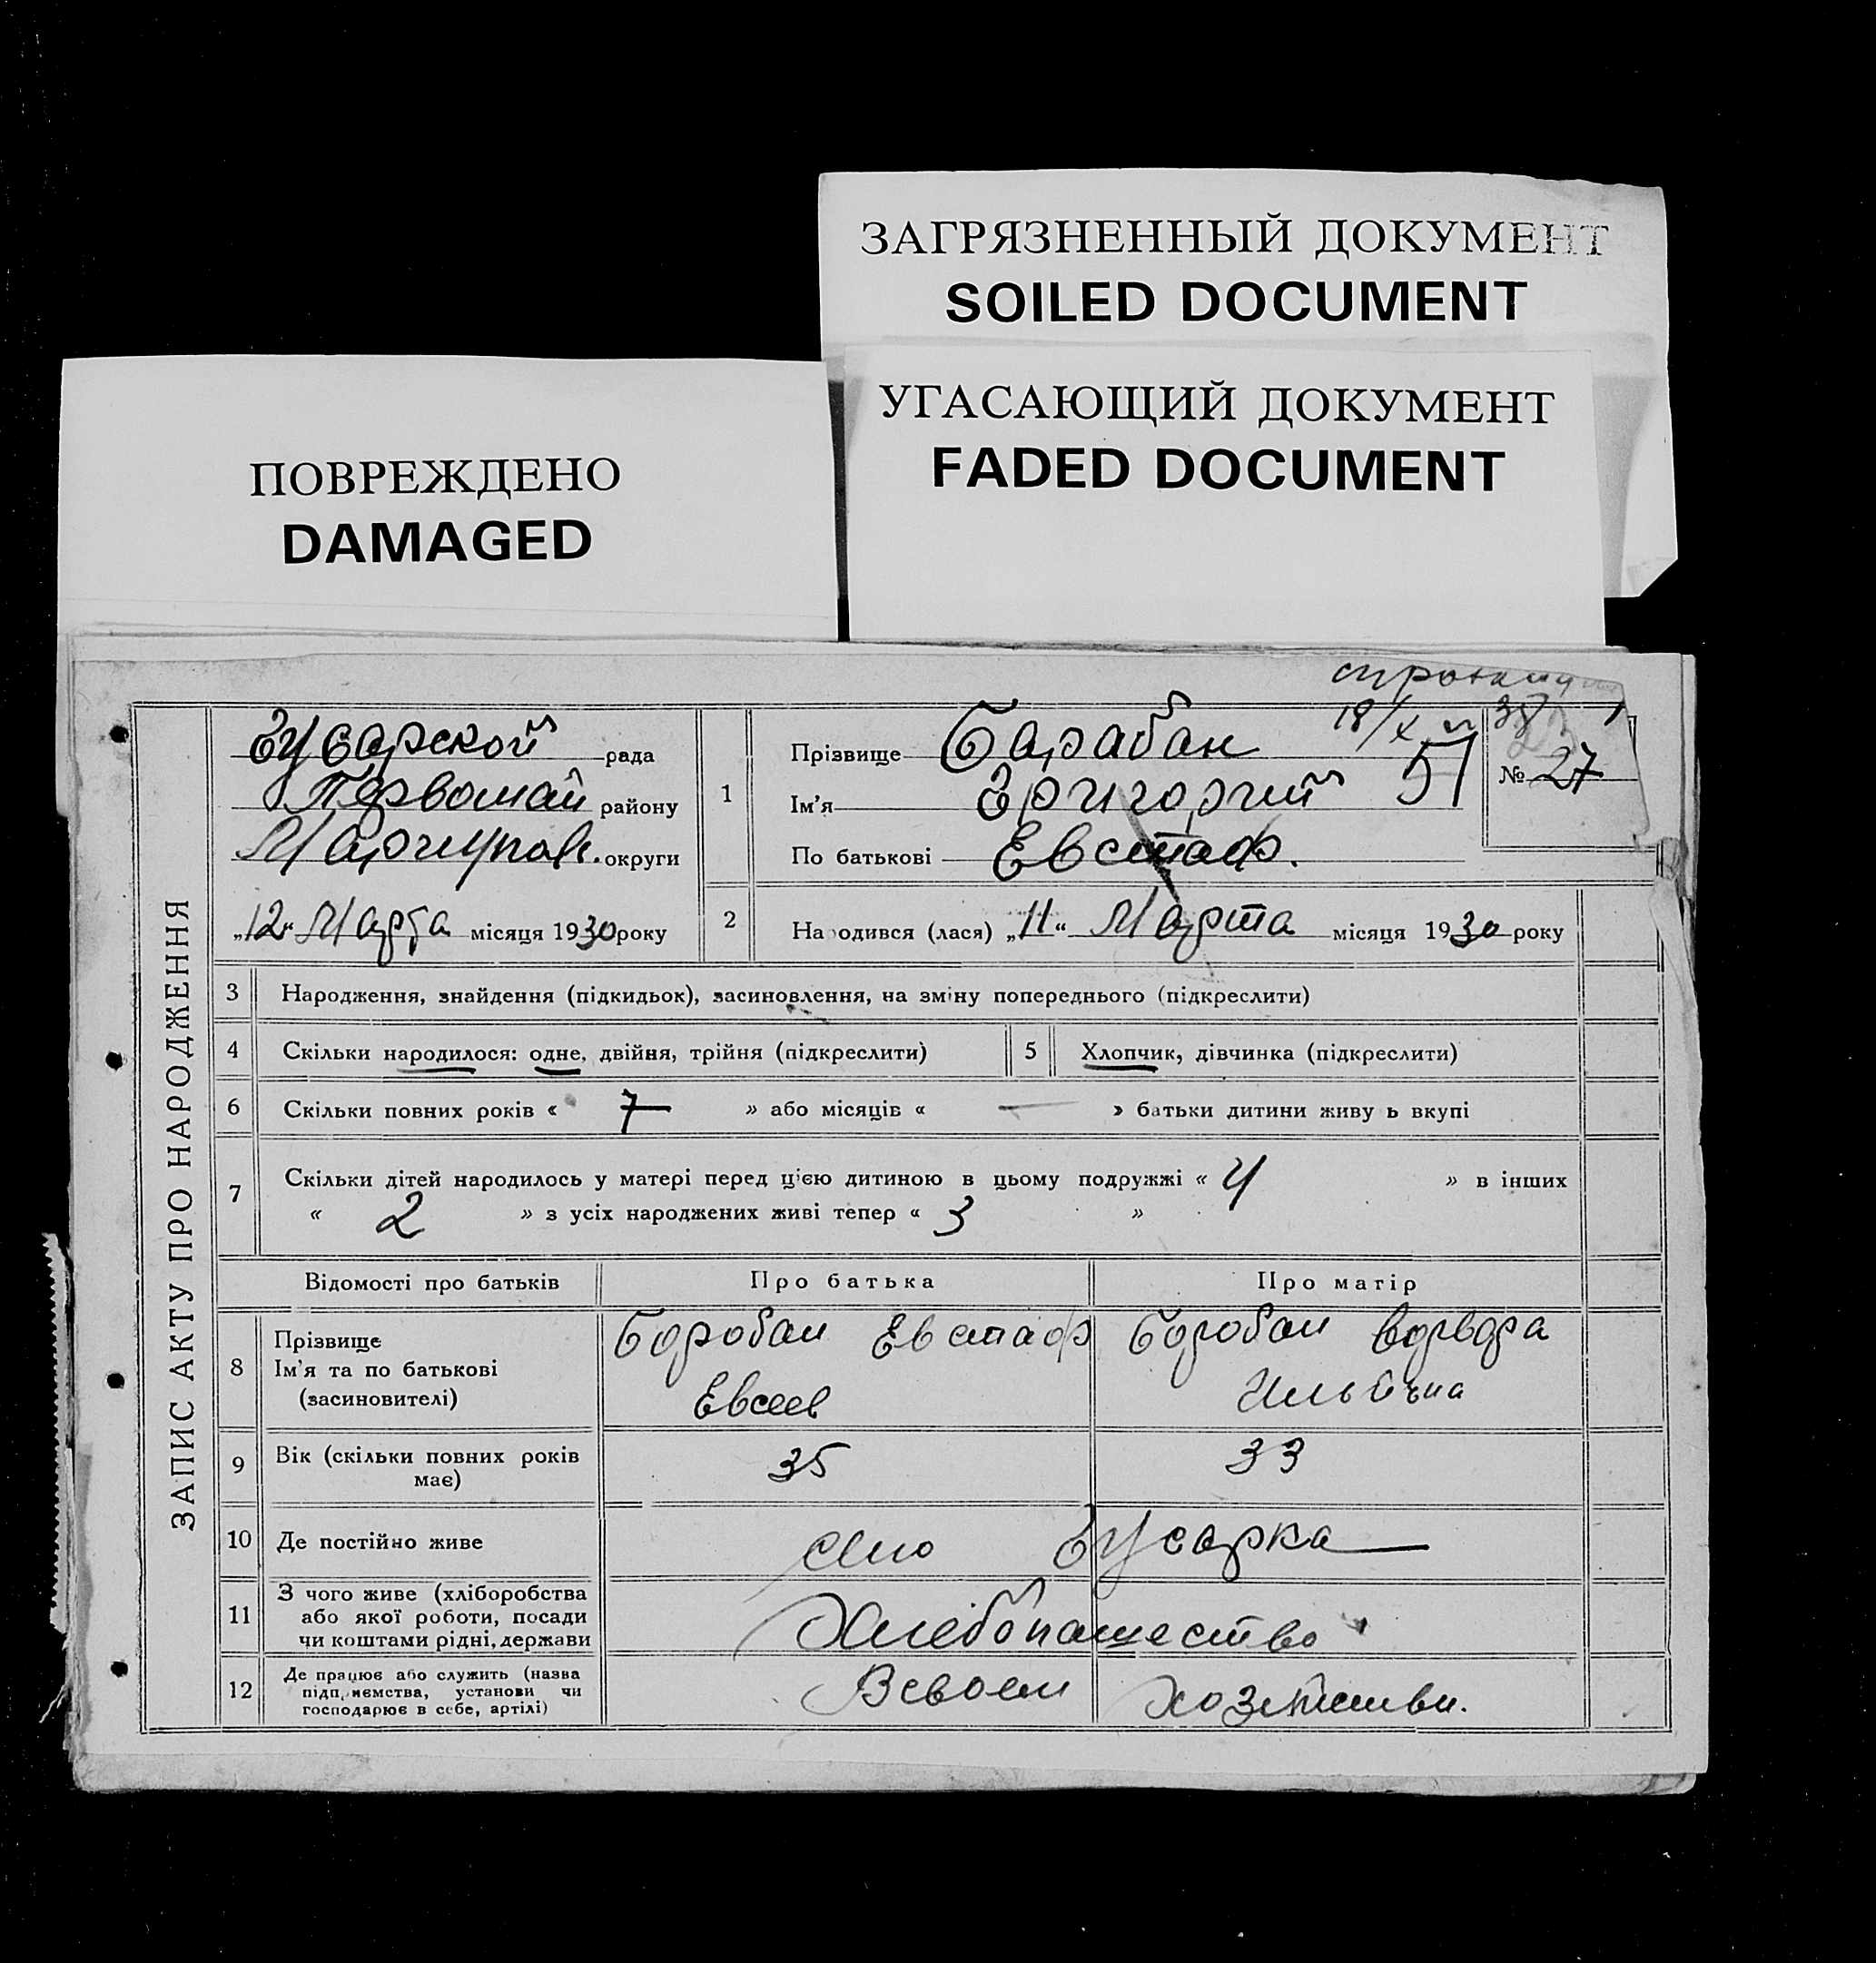 ЗАГРЯЗНЕННЫЙ ДОКУМЕНТ
SOILED DOCUMENT
УГАСАЮЩИЙ ДОКУМЕНТ
FADED DOCUMENT
ПОВРЕЖДЕНО
DAMAGED
ЗАПИС АКТУ ПРО НАРОДЖЕННЯ
Гусарской рада
Первомай району
Мариупол. округи
„12“ Марта місяця 1930 року
18/X 38
1 Прізвище Барабан
Ім'я Григорий 51
По батькові Евстаф.
№ 27
2 Народився (лася) „11“ Марта місяця 1930 року
3 Народження, знайдення (підкидьок), засиновлення, на зміну попереднього (підкреслити)
4 Скільки народилося: одне, двійня, трійня (підкреслити) 5 Хлопчик, дівчинка (підкреслити)
6 Скільки повних років « 7 » або місяців « — » батьки дитини живу ь вкупі
7 Скільки дітей народилось у матері перед цією дитиною в цьому подружжі « 4 » в інших
« 2 » з усіх народжених живі тепер « 3 »
Відомості про батьків Про батька Про матір
8 Прізвище Ім'я та по батькові (засиновителі)
Боробан Евстаф Боробан Ворвора
Евсеев Ильична
9 Вік (скільки повних років має) 35 33
10 Де постійно живе село Гусарка
11 З чого живе (хліборобства або якої роботи, посади чи коштами рідні, держави Хлебопашество
12 Де працює або служить (назва підприємства, установи чи господарює в себе, артілі) В своем